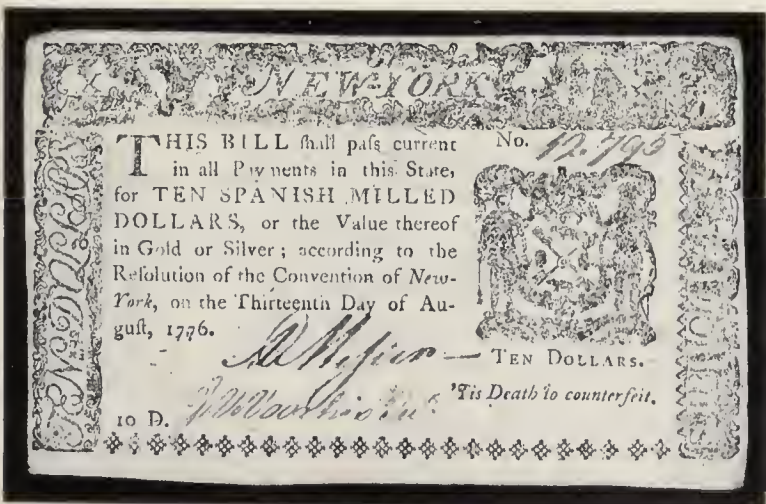 NEW-YORK
THIS BILL ſhall paſs current
in all Payments in this State,
for TEN SPANISH MILLED
DOLLARS, or the Value thereof
in Gold or Silver; according to the
Reſolution of the Convention of New-
York, on the Thirteenth Day of Au-
guſt, 1776.
No. 12.795
TEN DOLLARS.
'Tis Death to counterfeit.
10 D.
TEN DOLLARS